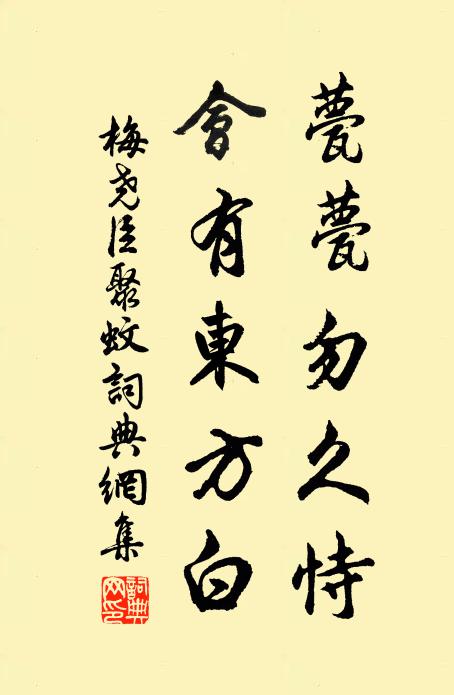 薨薨勿久恃
會有東方白
梅堯臣聚蚊詞典網集
詞典網印